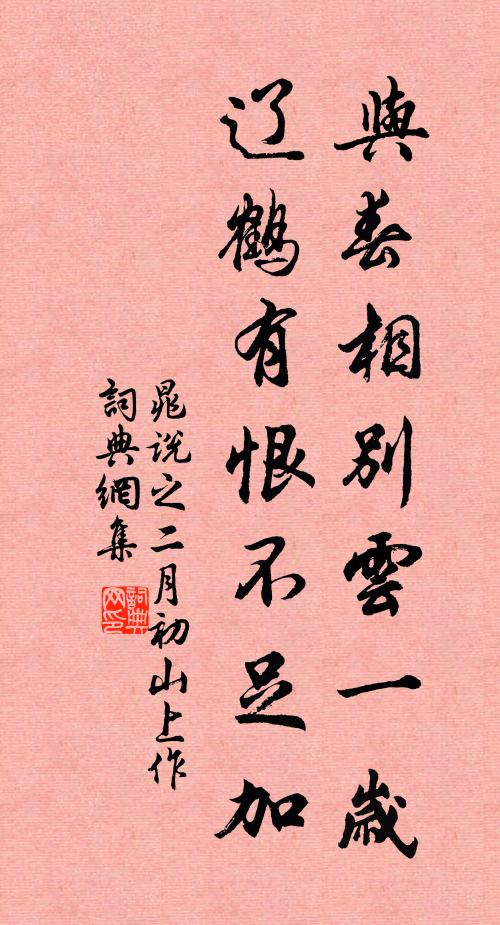 與春相別雲一歲
辽鶴有恨不足加
晁說之二月初山上作
詞典網集
詞典网印